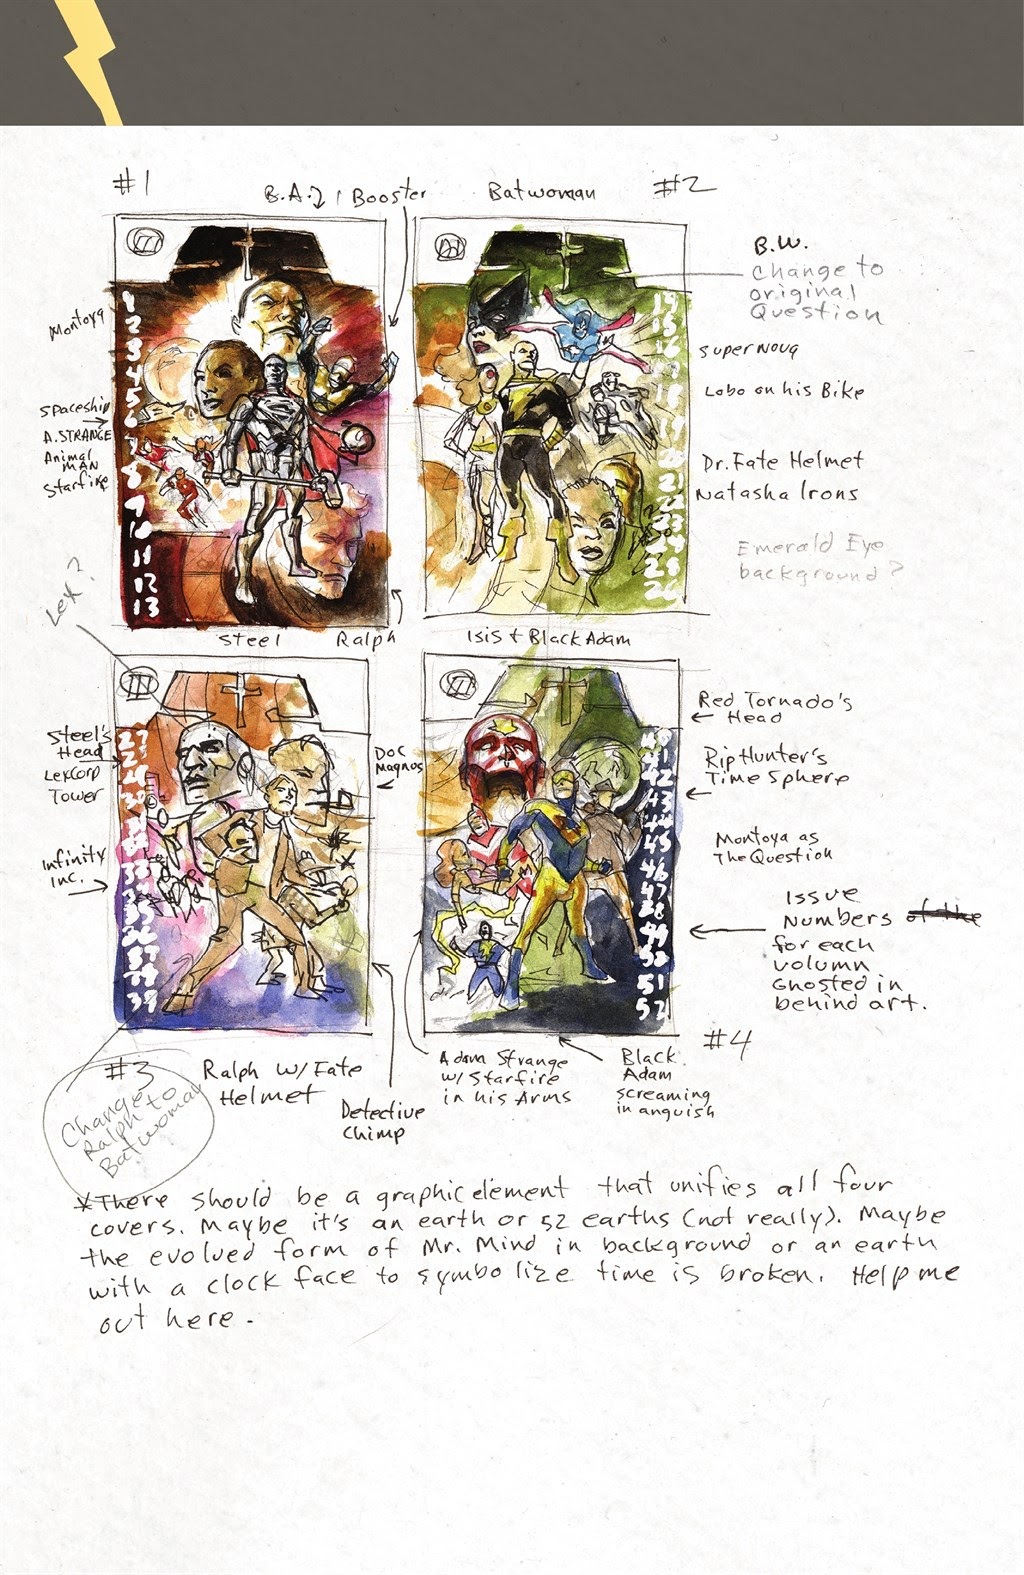 #1
B.A. | Booster
Batwoman
#2
B.W.
change to
original
Question
Montoya
Supernova
Lobo on his Bike
Spaceship
A. STRANGE
Animal
MAN
Starfire
Dr. Fate Helmet
Natasha Irons
Emerald Eye
background?
1
2
3
4
5
6
7
8
9
10
11
12
13
14
15
16
17
18
19
20
21
22
23
24
25
26
Lex?
Steel
Ralph
Isis + Black Adam
Steel's
Head
LexCorp
Tower
Doc
Magnus
Red Tornado's
Head
Rip Hunter's
Time Sphere
Infinity
Inc.
Montoya as
The Question
Issue
Numbers of the
for each
volumn
Ghosted in
behind art.
27
39
42
43
45
46
47
49
50
51
52
#3
#4
Change
Ralph to
Batwoman
Ralph w/ Fate
Helmet
Detective
Chimp
Adam Strange
w/ Starfire
in his Arms
Black
Adam
screaming
in anguish
*There should be a graphic element that unifies all four
covers. Maybe it's an earth or 52 earths (not really). Maybe
the evolved form of Mr. Mind in background or an earth
with a clock face to symbolize time is broken. Help me
out here.